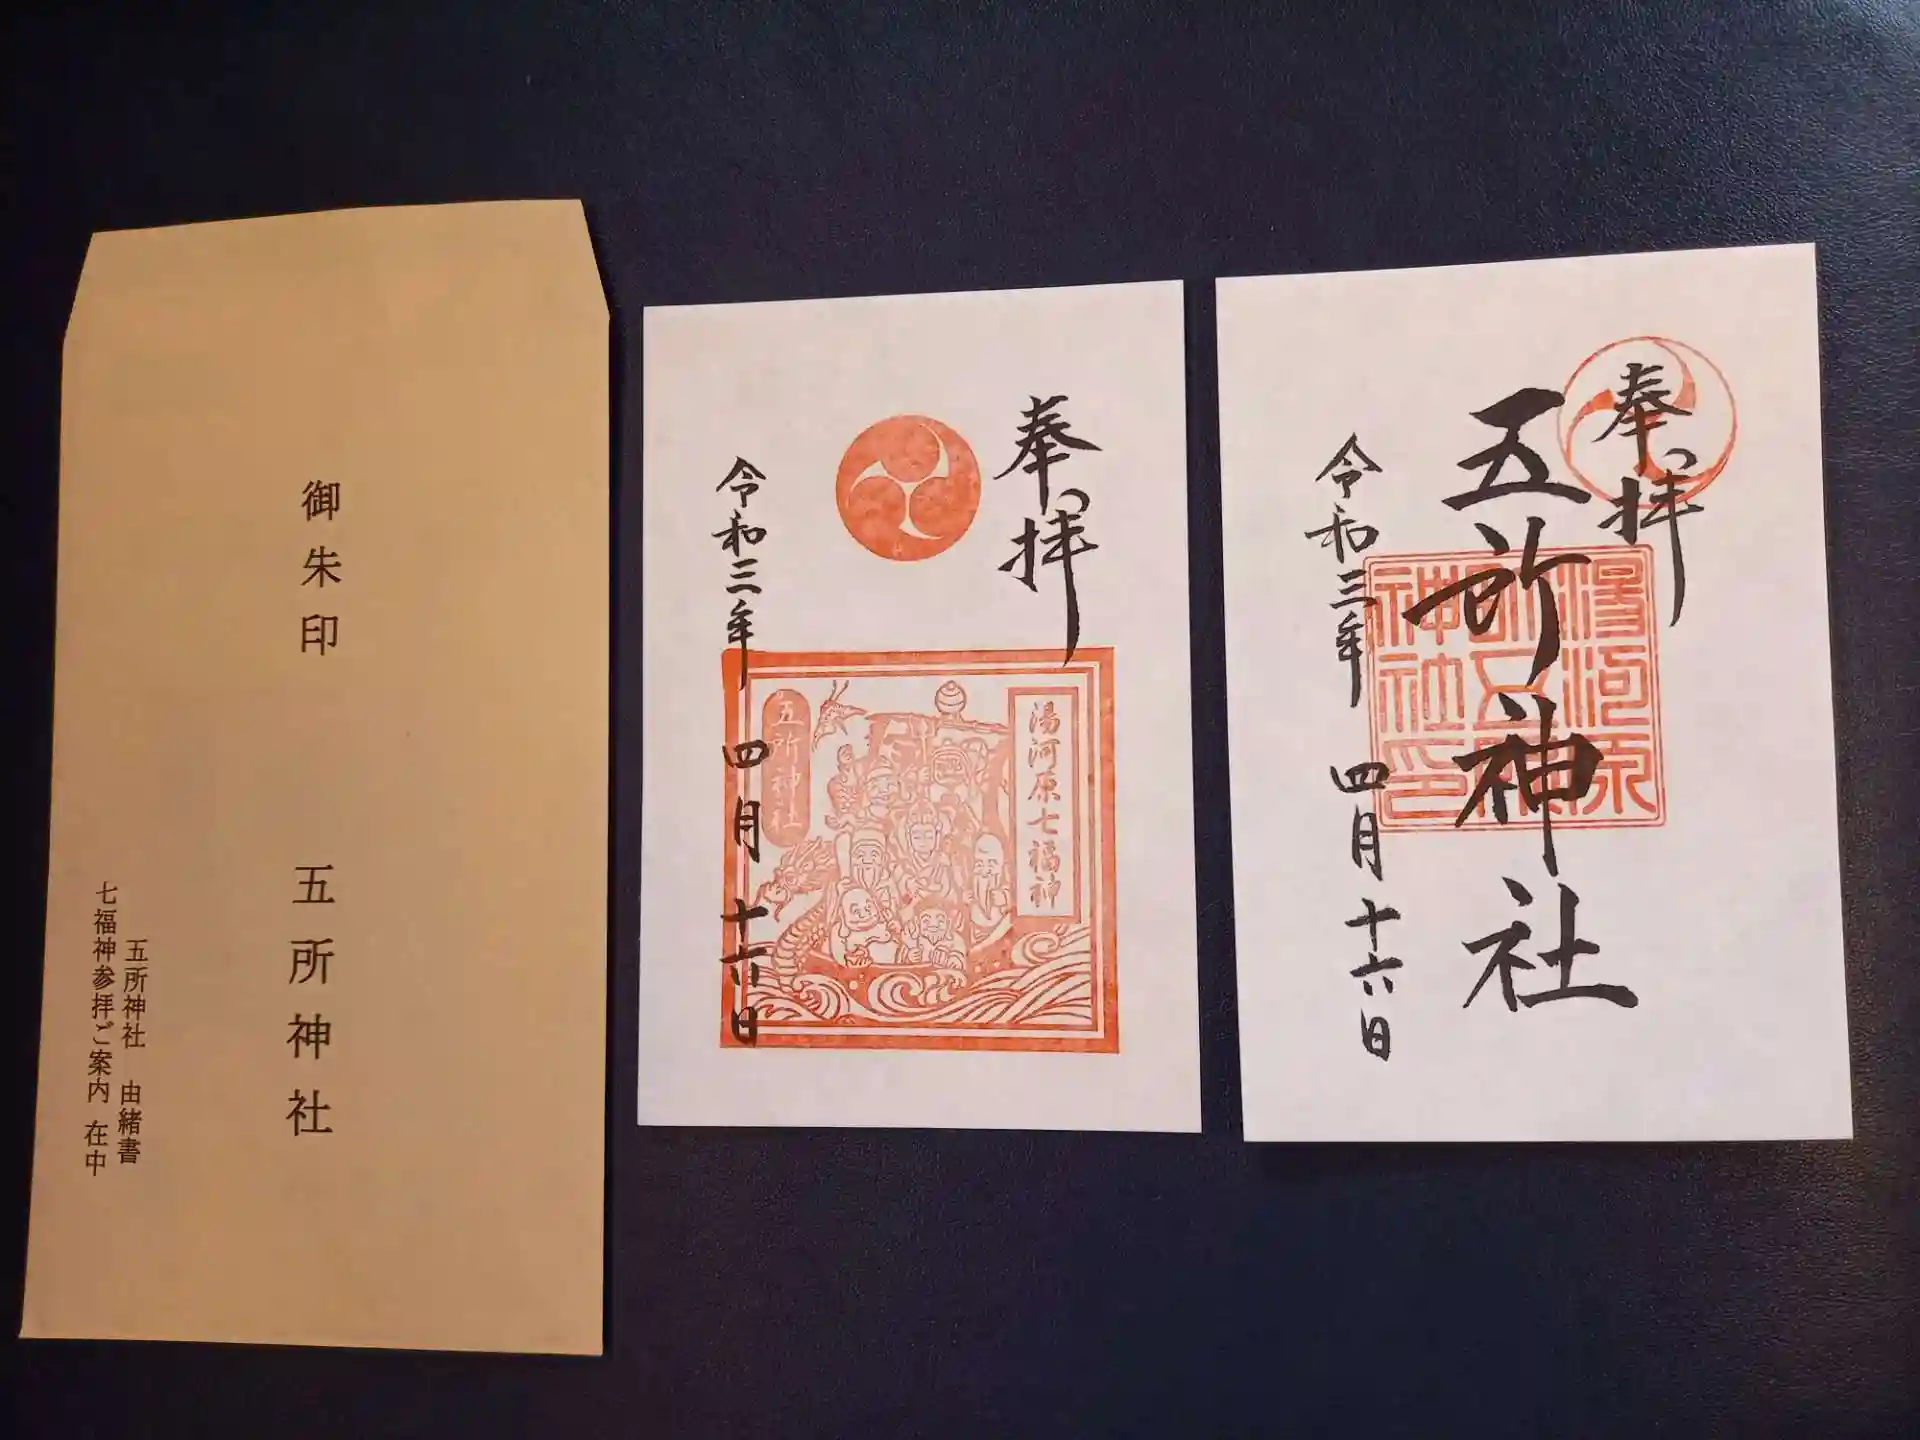 御朱印 五所神社
五所神社 由緒書
七福神参拝ご案内 在中
奉拝
令和三年 四月 十六日
湯河原七福神
五所神社
奉拝
五所神社
令和三年 四月 十六日
湯河原
五所神社印